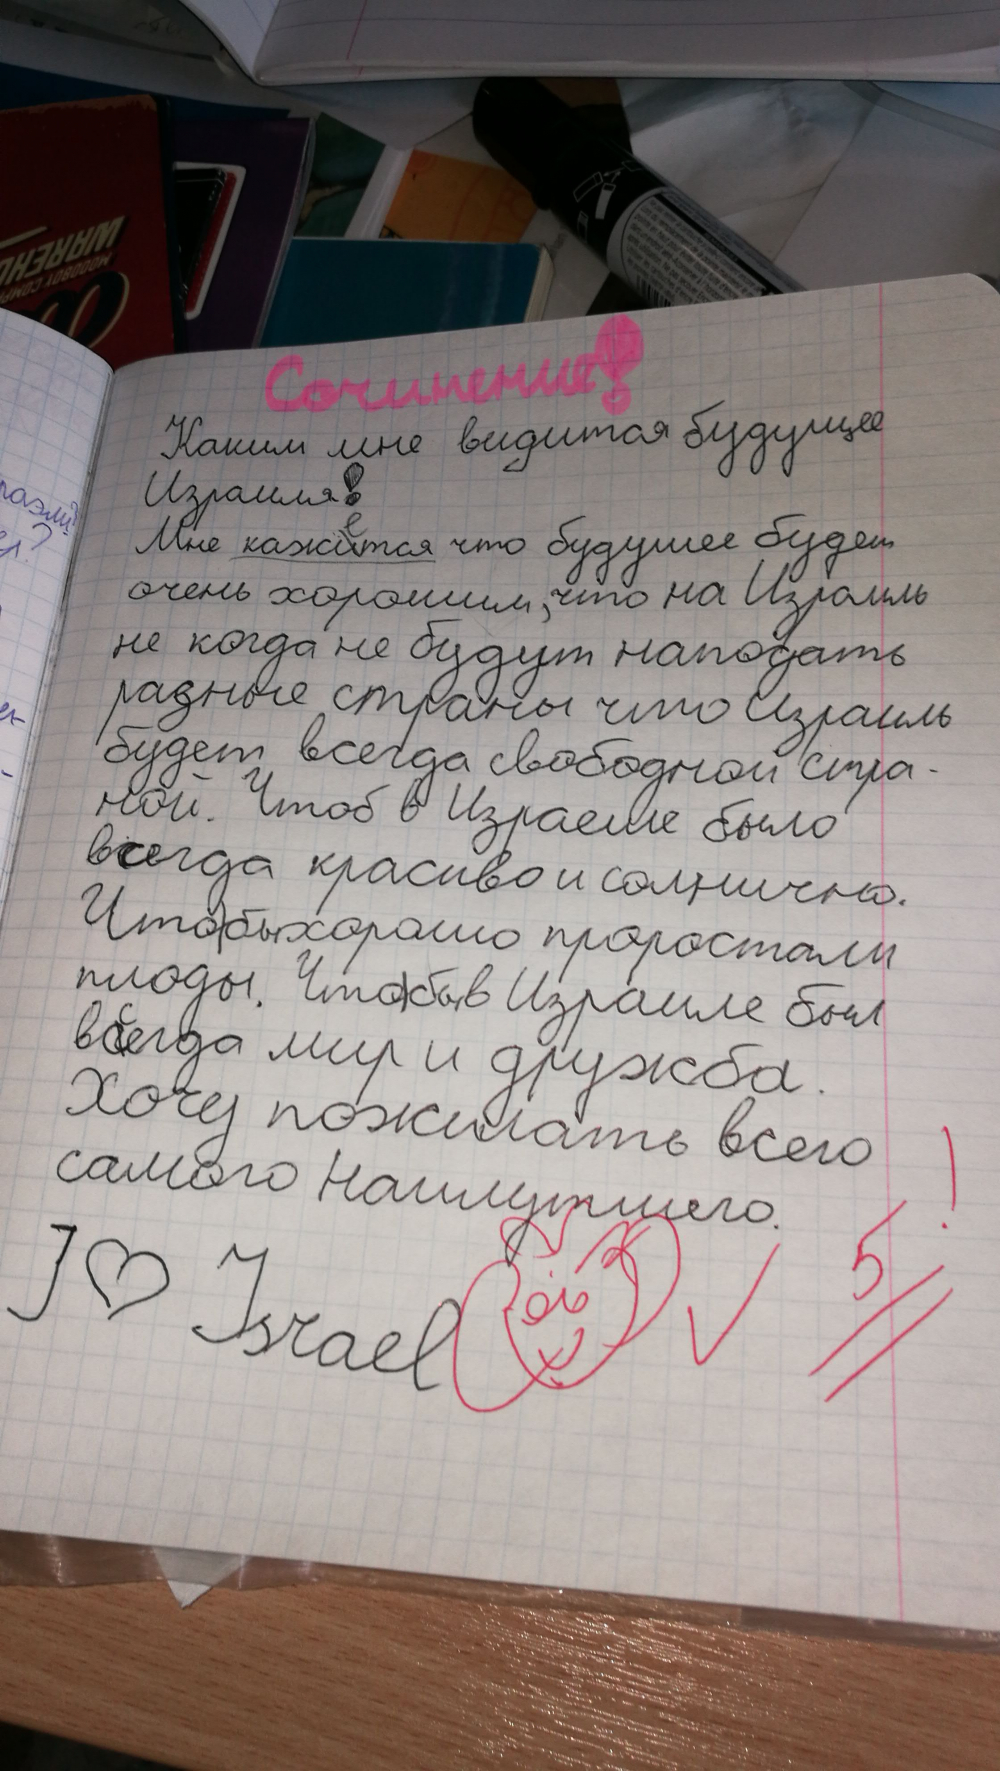 WAREHO
MOODBOY COMP
Сочинение!
Каким мне видится будущее
Израиля!
Мне кажится что будушее будет
е
очень хорошим, что на Израиль
не когда не будут наподать
разные страны что Израиль
будет всегда свободной стра-
ной. Чтоб в Израеле было
всегда красиво и солнично.
Чтобы хорошо проростали
плоды. Чтобы в Израиле был
всегда мир и дружба.
Хочу пожилать всего
самого наилутшего.
I ♡ Israel
5!